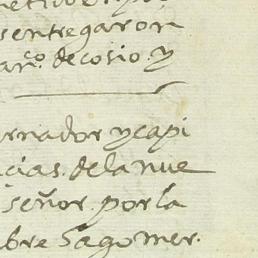 sentregaron
anco. de cosio. y
ernador y capi
cias. de la nue
señor. por la
bre Sagomer.